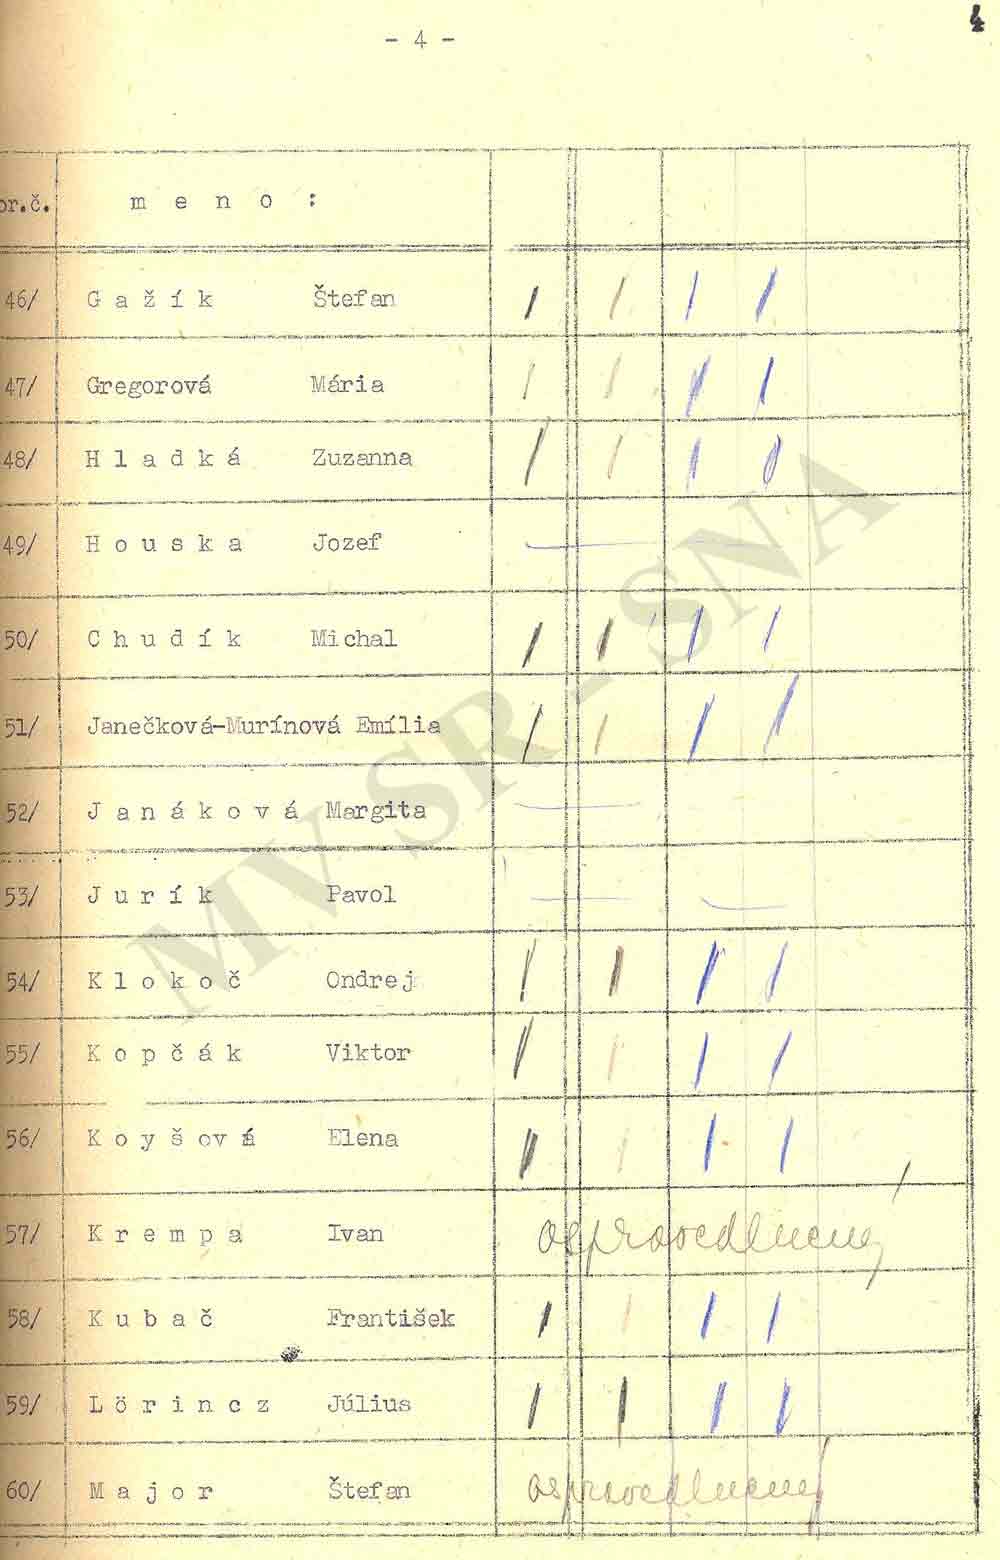 - 4 -
4
or.č. meno:
46/ Gažík Štefan / / / /
47/ Gregorová Mária / / / /
48/ Hladká Zuzanna / / / /
49/ Houska Jozef —
50/ Chudík Michal / / / /
51/ Janečková-Murínová Emília / / / /
52/ Janáková Margita —
53/ Jurík Pavol — —
54/ Klokoč Ondrej / / / /
55/ Kopčák Viktor / / / /
56/ Koyšová Elena / / / /
57/ Krempa Ivan ospravedlnený
58/ Kubač František / / / /
59/ Lörincz Július / / / /
60/ Major Štefan ospravedlnený
MV SR - SNA